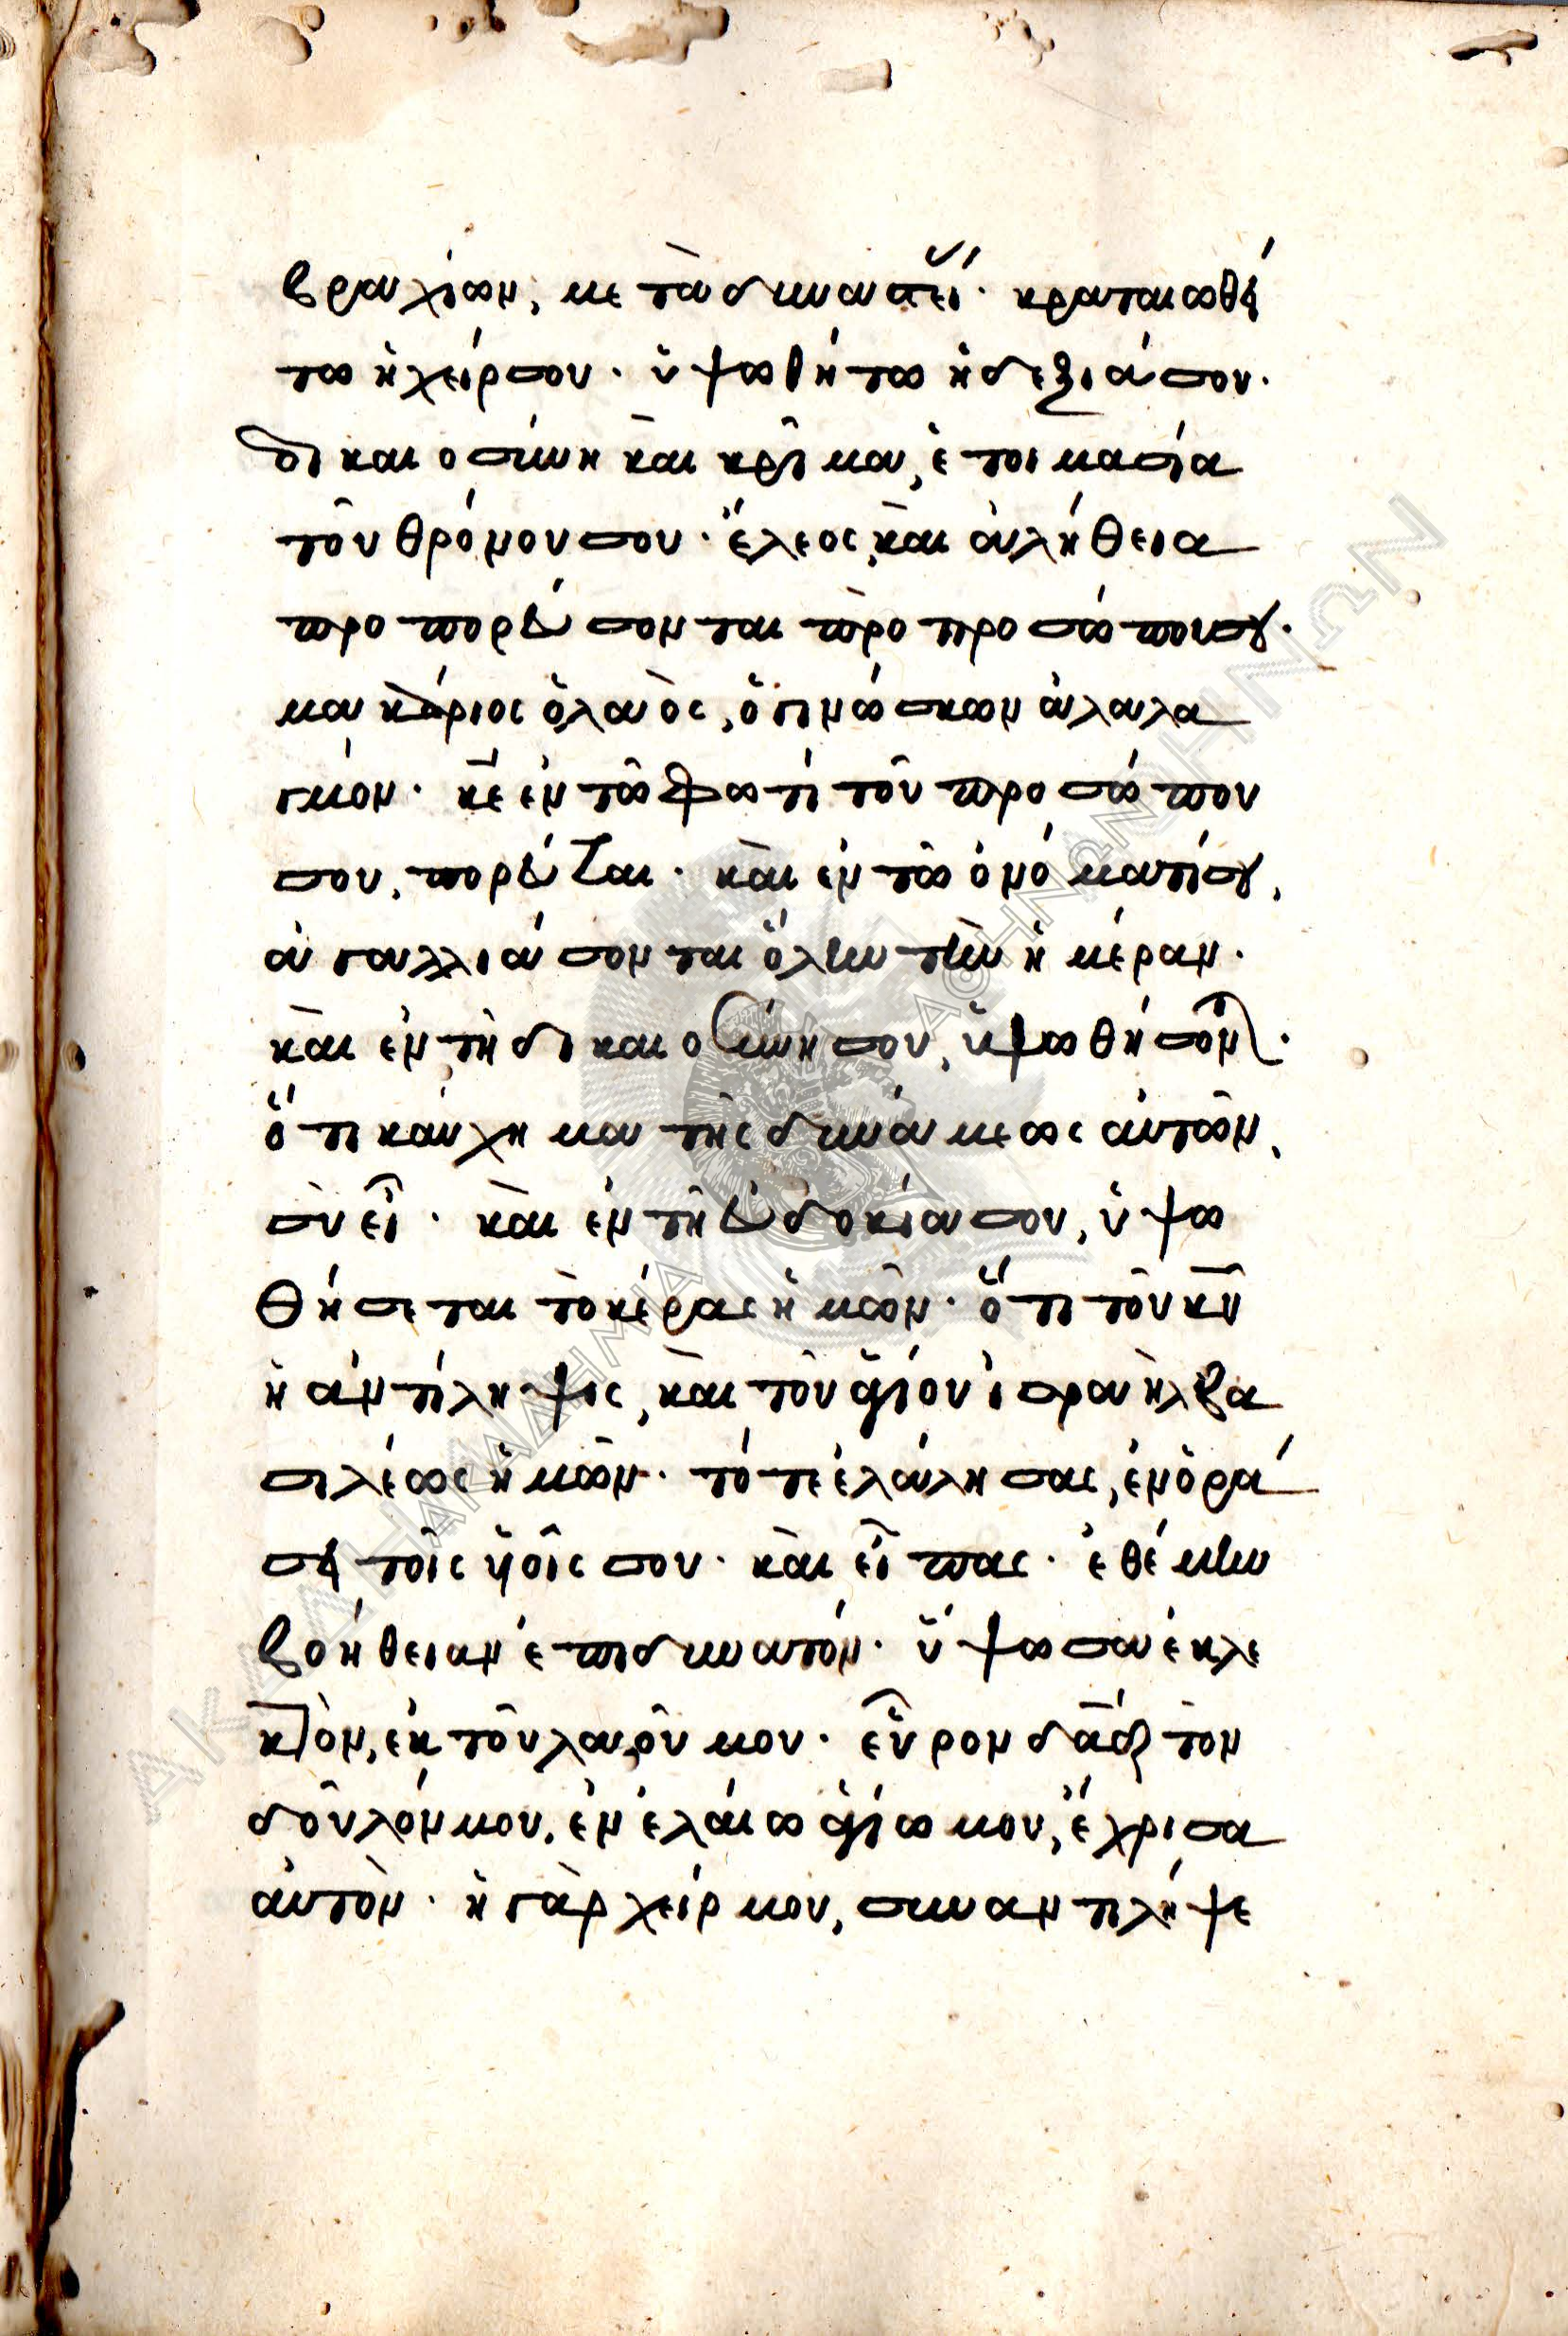 βραχίων, μετὰ δυναστεί. κραταιωθή
τω ἡ χείρ σου. ὑψωθήτω ἡ δεξιά σου.
δικαιοσύνη καὶ κρῖμα, ἑτοιμασία
τοῦ θρόνου σου. ἔλεος, καὶ ἀλήθεια
προπορεύσονται πρὸ προσώπου σου.
μακάριος ὁ λαὸς, ὁ γινώσκων ἀλαλα
γμόν. κε ἐν τῶ φωτί τοῦ προσώπου
σου, πορεύσονται. καὶ ἐν τῶ ὀνόματί σου,
ἀγαλλιάσονται ὅλην τὴν ἡμέραν.
καὶ ἐν τῆ δικαιοσύνη σου, ὑψωθήσονται.
ὅτι καύχημα τῆς δυνάμεως αὐτῶν,
σὺ εἶ. καὶ ἐν τῆ εὐδοκία σου, ὑψω
θήσεται τὸ κέρας ἡμῶν. ὅτι τοῦ κυ
ἡ ἀντίληψις, καὶ τοῦ ἁγίου ἰσραὴλ βα
σιλέως ἡμῶν. τότε ἐλάλησας, ἐν ὁρά
σει τοῖς υἱοῖς σου. καὶ εἶπας. ἐθέμην
βοήθειαν ἐπι δυνατόν. ὕψωσα ἐκλε
κτὸν, ἐκ τοῦ λαοῦ μου. εὗρον δαδ τὸν
δοῦλόν μου, ἐν ἐλαίω ἁγίω μου, ἔχρισα
αὐτὸν. ἡ γὰρ χείρ μου, συναντιλήψε